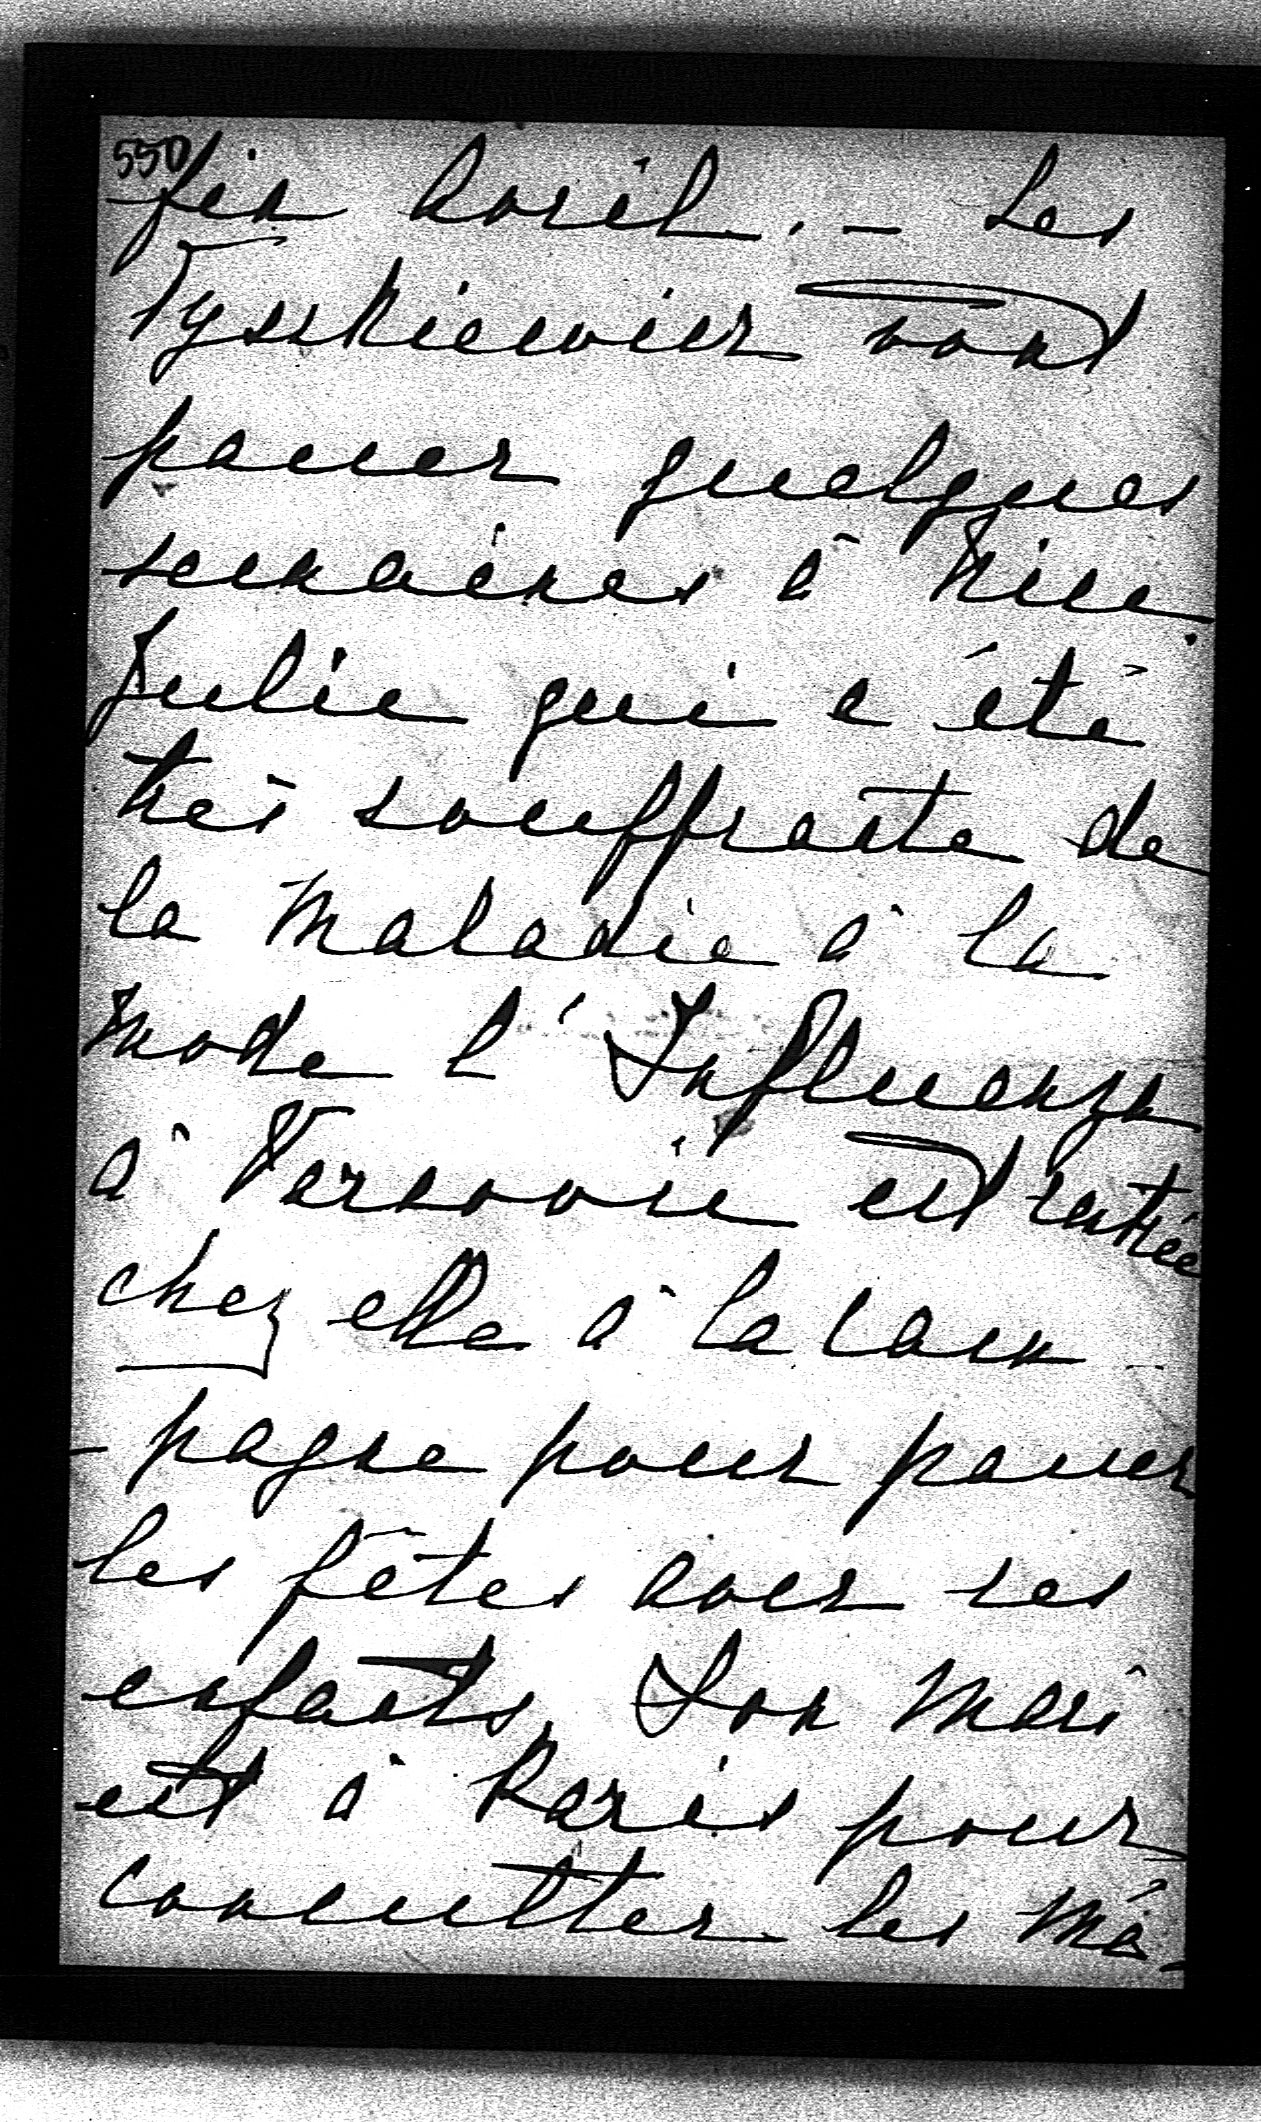 550
fin Avril. — Les
Tyszkiewicz vont
passer quelques
semaines à Nice.
Julie qui a été
très souffrante de
la maladie à la
mode l'Influenza
à Varsovie est rentrée
chez elle à la cam
- pagne pour passer
les fêtes avec ses
enfants, Son mari
est à Paris pour
consulter les mé-